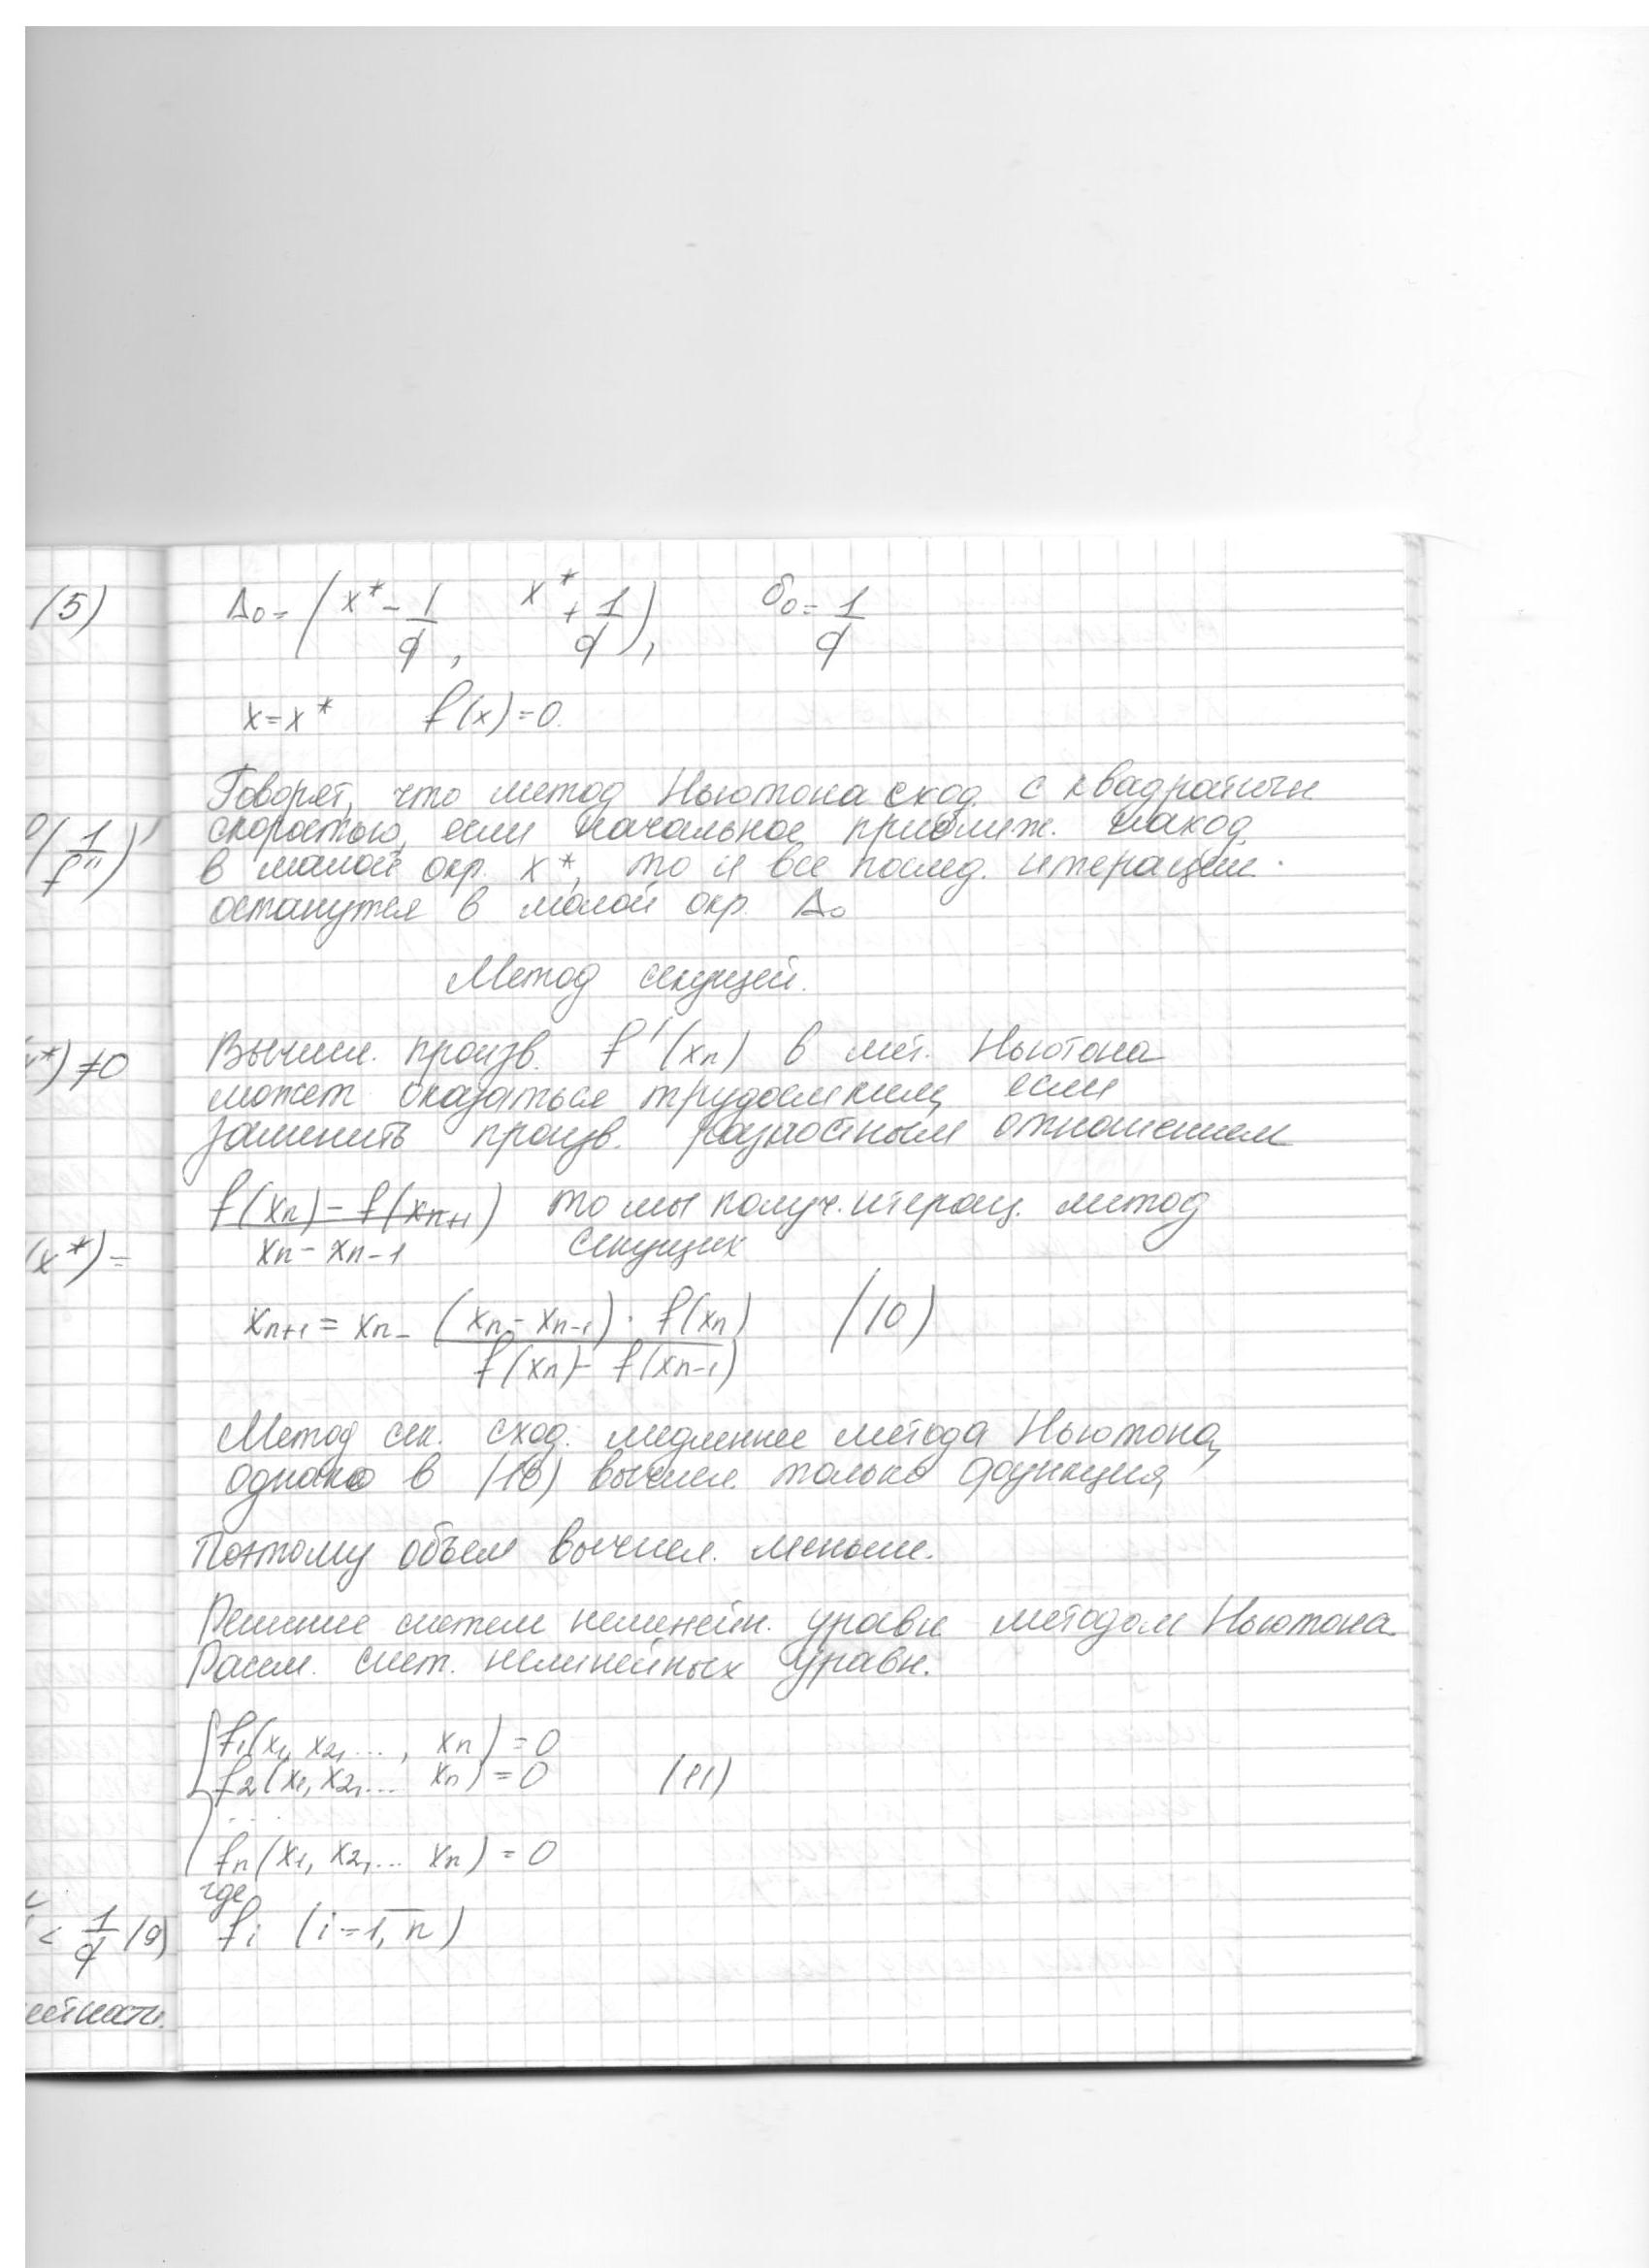 (5)
Δ₀ = (x* - 1/q, x* + 1/q), δ₀ = 1/q
x = x* f(x) = 0.
Говорят, что метод Ньютона сход. с квадратичн
(1/f'')'
скоростью, если начальное приближ. наход.
в малой окр. x*, то и все послед. итерации.
останутся в малой окр. Δ₀
Метод секущей.
*) ≠ 0
Вычисл. произв. f'(xn) в мет. Ньютона
может оказаться трудоемким, если
заменить произв. разностным отношением
(f(xn) - f(xn+1))/(xn - xn-1) то мы получ. итерац. метод
секущих
(x*) =
xn+1 = xn - ((xn - xn-1) · f(xn))/(f(xn) - f(xn-1)) (10)
Метод сек. сход. медленнее метода Ньютона,
однако в (10) вычисл. только функция,
Поэтому объем вычисл. меньше.
Решение систем нелинейн. уравн. методом Ньютона.
Рассм. сист. нелинейных уравн.
f₁(x₁, x₂, ..., xn) = 0
f₂(x₁, x₂, ... xn) = 0 (11)
...
fn(x₁, x₂, ... xn) = 0
где
< 1/q (9)
fi (i = 1, n)